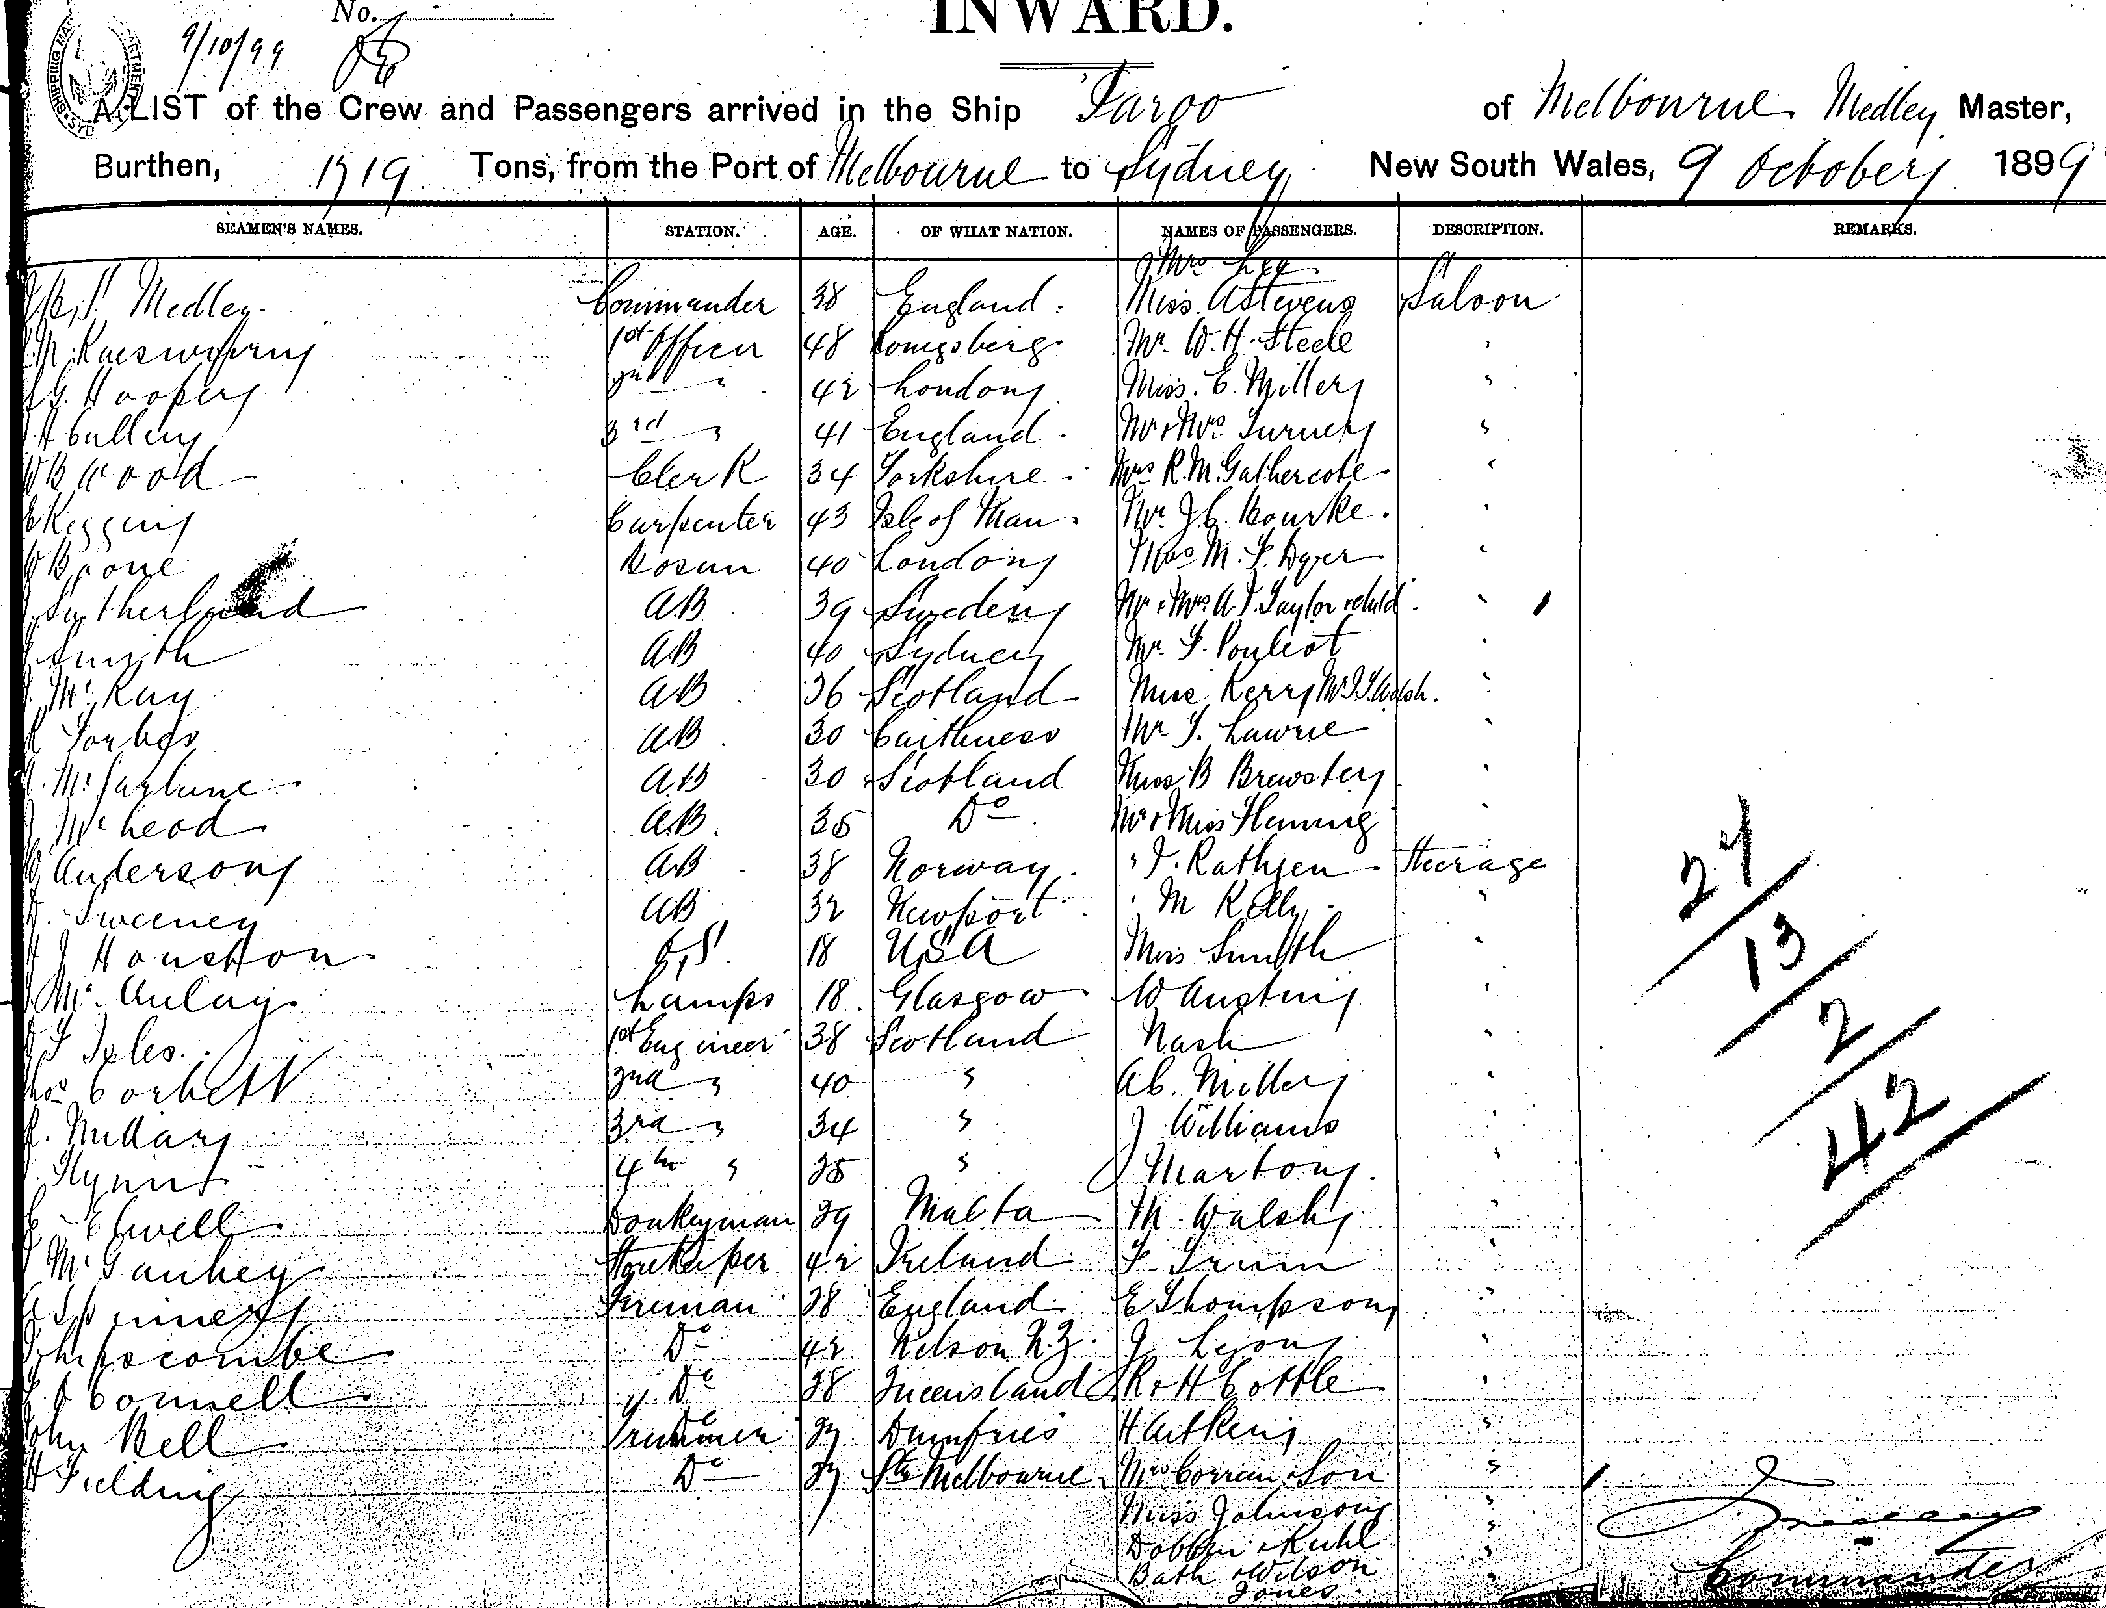 No.
INWARD.
9/10/99
A LIST of the Crew and Passengers arrived in the Ship Taroo of Melbourne Medley Master,
Burthen, 1719 Tons, from the Port of Melbourne to Sydney New South Wales, 9 October 1899
SEAMEN'S NAMES. STATION. AGE. OF WHAT NATION. NAMES OF PASSENGERS. DESCRIPTION. REMARKS.
Mrs
Medley Commander 38 England Miss A Stevens Saloon
1st Officer 48 Mr. W. H. Steele "
Hooper 2nd " 42 London Miss. E. Miller "
H Cullen 3rd " 41 England Mr & Mrs Turner "
W B Wood Clerk 34 Yorkshire Mrs R. M. Gathercole "
E Keggin Carpenter 43 Isle of Man Mr J C. Bourke "
W Boone Bosun 40 London M. F. Dyer "
Sutherland AB 39 Sweden Mr & Mrs A J. Taylor & child "
Smith AB 40 Sydney Mr. F. Pouliot "
McKay AB 36 Scotland Miss Kerr Mr J. Walsh. "
R Forbes AB 30 Caithness Mr T. Lawrie "
McFarlane AB 30 Scotland Miss B Brewster "
McLeod AB 35 Do Mr & Miss Fleming "
Anderson AB 38 Norway " J. Rathjen Steerage
Sweeney AB 32 Newport " M Kelly "
H J Houston O,S 18 USA Miss Smith "
McAulay Lamps 18 Glasgow W Austin "
Isles 1st Engineer 38 Scotland Nash "
Thos Corbett 2nd " 40 " A C. Miller "
Millar 3rd " 34 " J Williams "
Flynn 4th " 25 " J Marton "
Elwell Donkeyman 29 Malta M. Walsh "
Storekeeper 42 Ireland F "
Fireman 28 England E Thompson "
Lipscombe Do 42 Nelson N.Z. J Lyon "
O'Connell Do 28 Queensland R & H Cottle "
John Bell Trimmer 27 Dumfries H Aitken "
H Fielding Do 27 Sth Melbourne Mrs Corran & Son "
Miss Johnson "
Dobbin & Kuhl "
Bath & Wilson "
Jones
27
13
2
42
Commander